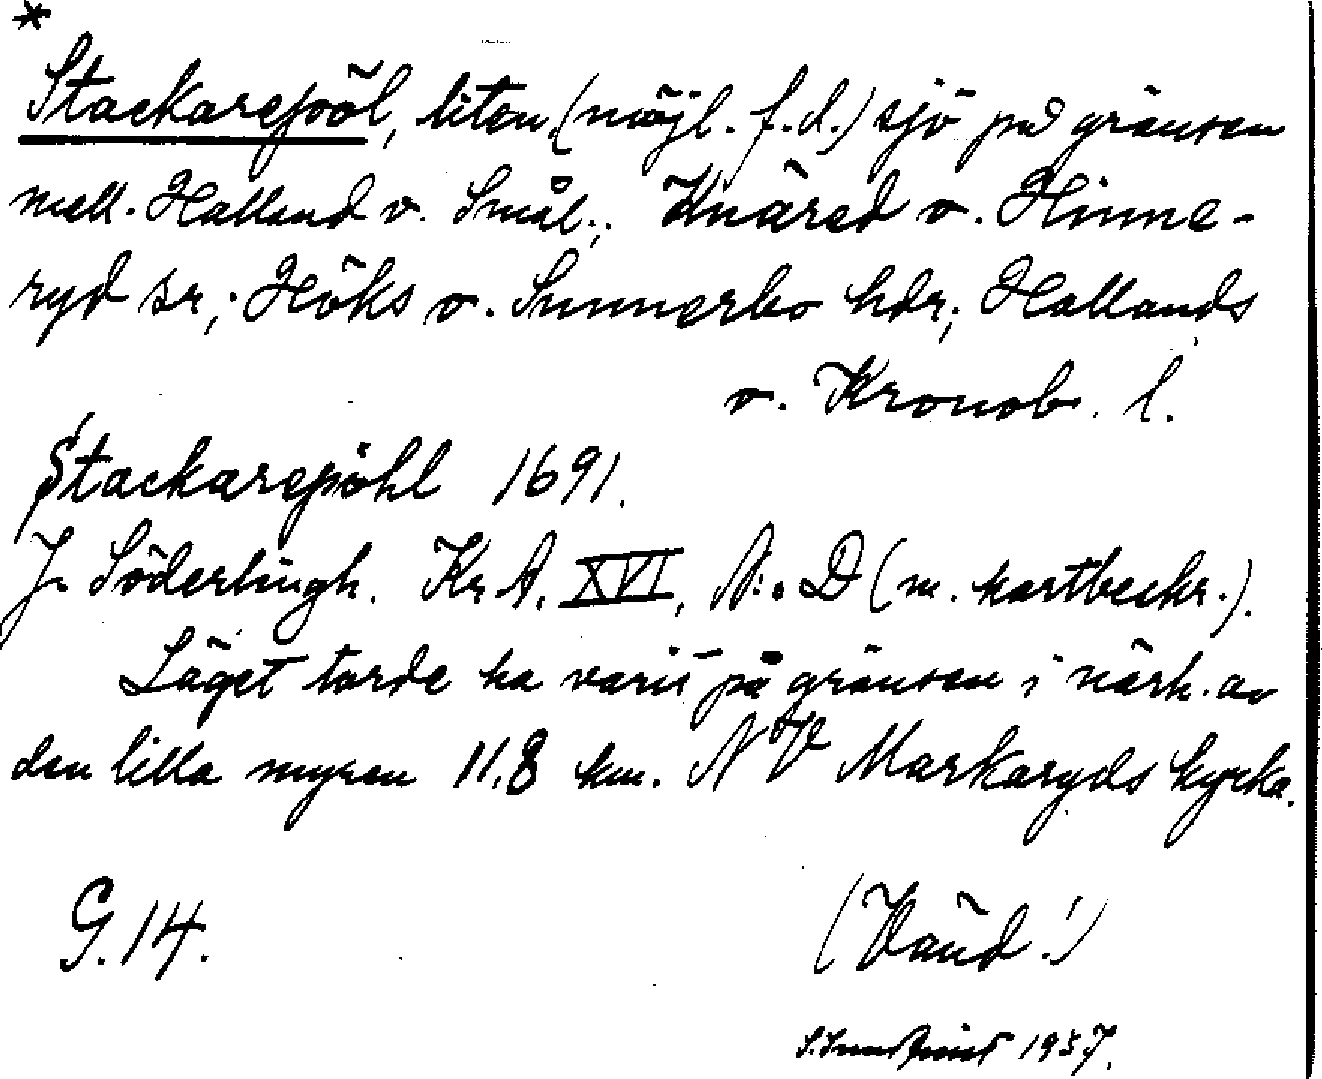 *
Stackarepöl, liten (möjl. f.d.) sjö på gränsen
mell. Halland o. Smål.; Knäred o. Hinne-
ryd sr; Höks o. Sunnerbo hdr; Hallands
o. Kronob. l.
Stackarepöhl 1691.
J. Söderlingh. Kr. A. XVI, N:o D (m. kartbeskr.).
Läget torde ha varit på gränsen i närh. av
den lilla myren 11.8 km. NV Markaryds kyrka.
G.14.
(Vänd!)
1957.